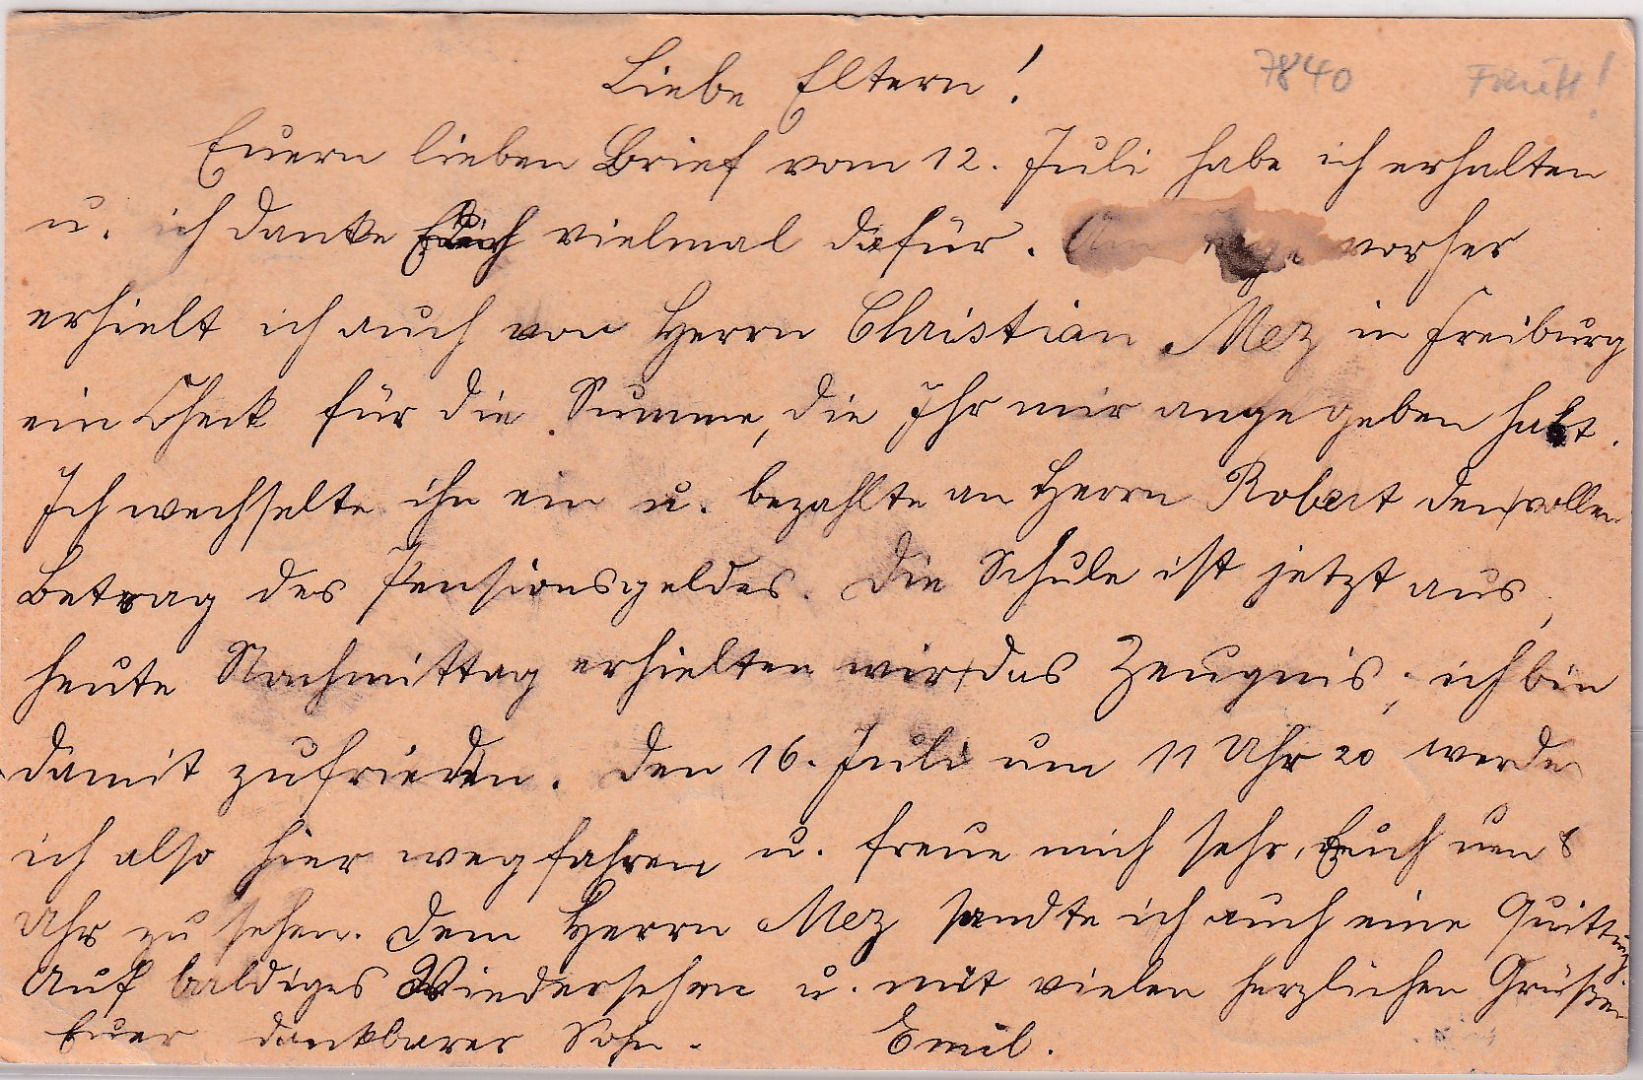 7840
Liebe Eltern!
Euern lieben Brief vom 12. Juli habe ich erhalten
u. ich danke Euch vielmal dafür. Am vorher
erhielt ich auch von Herrn Christian Mez in Freiburg
ein Check für die Summe, die Ihr mir angegeben habt.
Ich wechselte ihn ein u. bezahlte an Herrn Robert den vollen
Betrag des Pensionsgeldes. Die Schule ist jetzt aus,
heute Nachmittag erhielten wir das Zeugnis; ich bin
damit zufrieden. Den 16. Juli um 11 Uhr 20 werde
ich also hier wegfahren u. freue mich sehr, Euch um 8
Uhr zu sehen. Dem Herrn Mez sandte ich auch eine Quittung
Auf baldiges Wiedersehen u. mit vielen herzlichen Grüßen
Euer dankbarer Sohn. Emil.